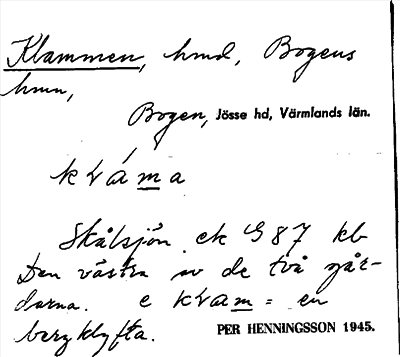 Klammen, hmd, Bogens
hmn,
Bogen, Jösse hd, Värmlands län.
kváma
Skålsjön ek 987 kb
Den västra av de två går-
darna. e kvam = en
bergklyfta.
PER HENNINGSSON 1945.